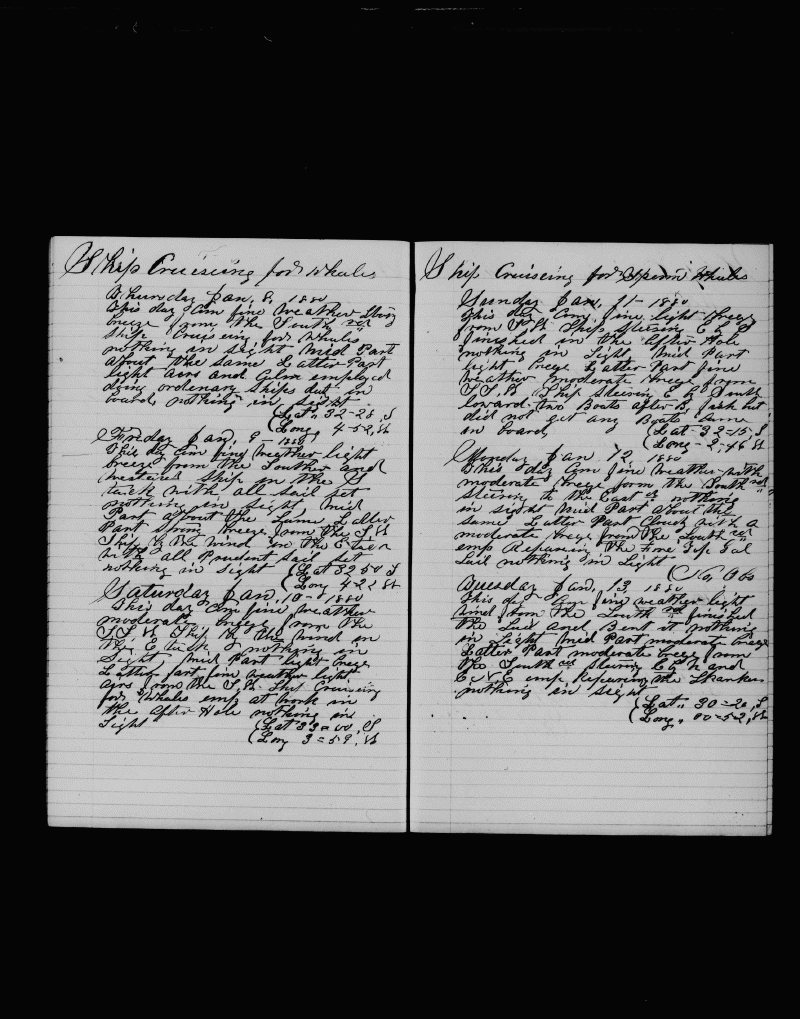 Ship Cruiseing for Whales
Thursday Jan, 8, 1880
This day Com fine weather Strong
breeze from the South
Ship Cruiseing for Whales
nothing in sight Mid Part
about the same Latter Part
light airs and Calm employed
doing ordenary Ships dut in
board, nothing in sight
(Lat, 32-28, S
(Long, 4-52, W
Friday Jan, 9 - 1880
This day Com fine weather light
breeze from the Souther and
westured Ship on the S
tack with all sail set
nothing in sight, Mid
Part about the same Latter
Part Strong breeze from the S W
Ship by the wind on the E tack
with all Prudent sail set
nothing in sight (Lat 32 50 S
(Long 4-22 W
Saturday Jan, 10 - 1880
This day Com fine weather
moderate breeze from the
S.S.W. Ship by the wind on
the E tack nothing in
Sight, Mid Part light breeze
Latter part fine weather light
airs from the S.W. Ship Cruising
for Whales emp at work in
the After Hole nothing in
Sight (Lat 33=00, S
(Long 3=59, W
Ship Cruiseing for Sperm Whales
Sunday Jan, 11- 1880
This day Com, fine light breeze
from S.W. Ship steering E by S
finished in the After Hole
nothing in Sight Mid Part
light breeze Latter Part fine
weather moderate breeze from
S.S.W. Ship steering E by South
lowered two Boats after B. fish but
did not get any Boats Came
on board, (Lat 32=15, S
(Long - 2, 46 W
Monday Jan 12, 1880
This day Com fine weather with
moderate breeze form the South
steering to the East nothing
in sight Mid Part about the
same Latter Part Cloudy with a
moderate breeze from the South
emp Repairing the Fore Top Sal
Sail nothing in Sight
(No, Obs
Tuesday Jan, 13, 1880
This day Com fine weather light
wind from the South finished
the Sail and Bent it nothing
in Sight Mid Part moderate breeze
Latter Part moderate breeze from
the South steering E by N and
E.N.E emp, Repairing the Spanker
nothing in sight
(Lat,, 30=20, S
(Long,, 00=52, W